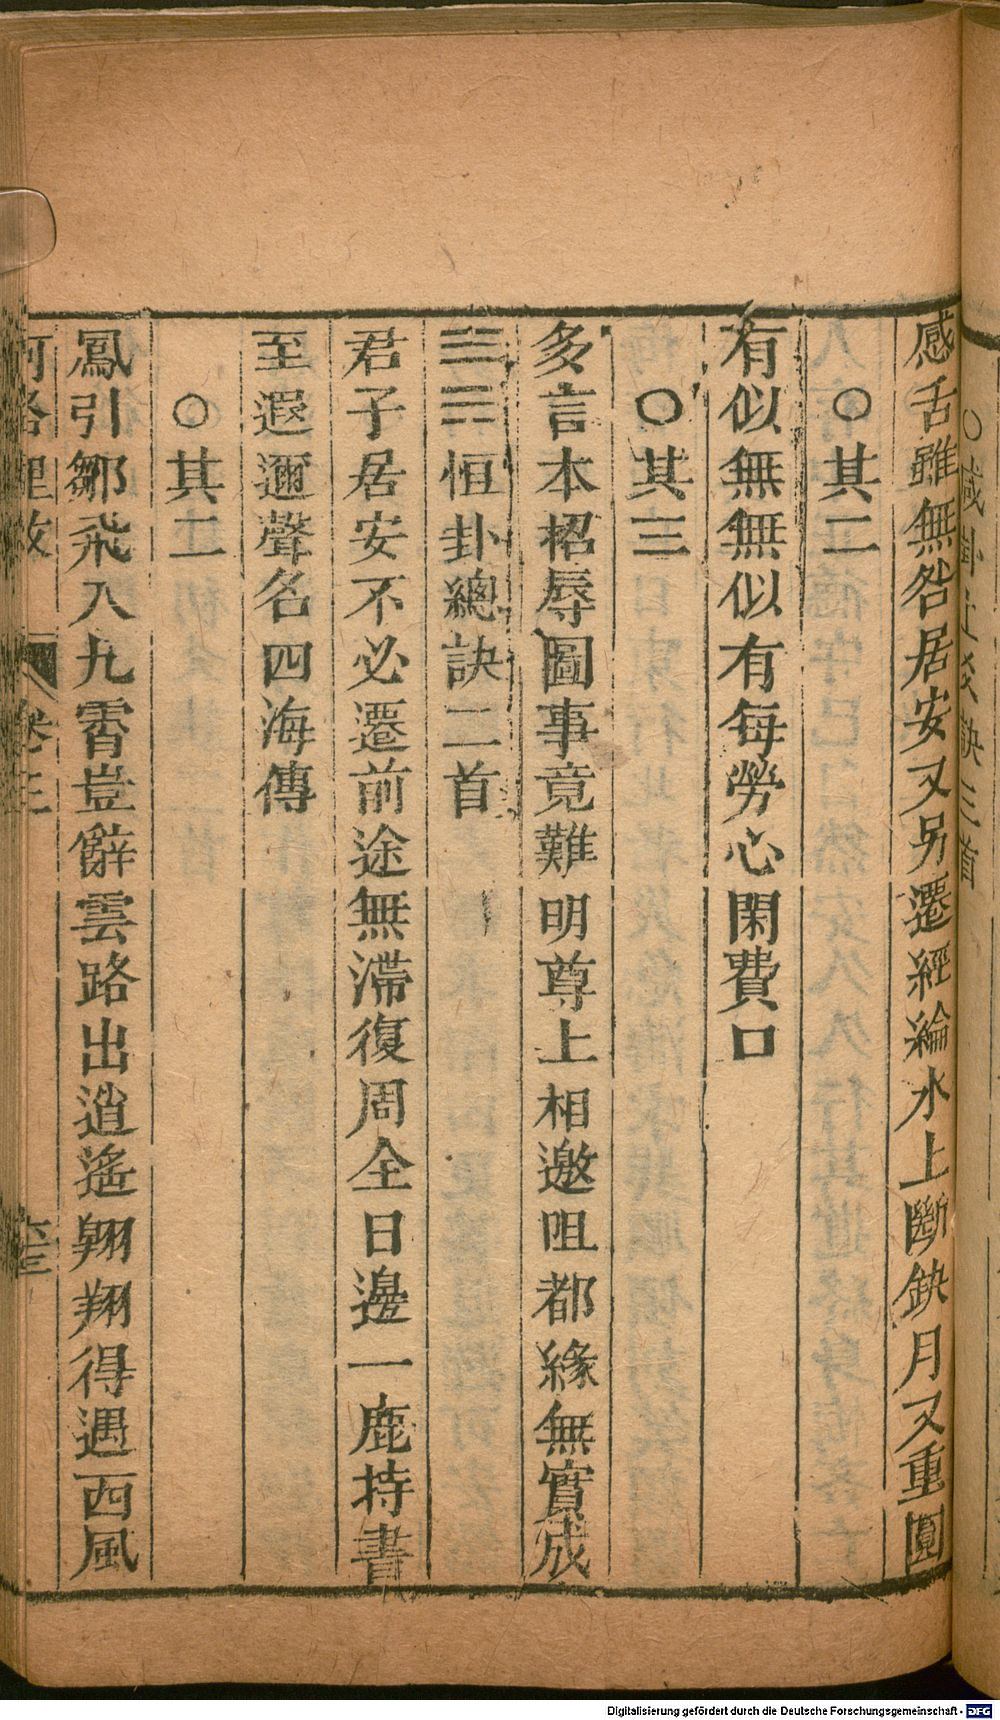 ○咸卦上爻訣三首
感舌雖無咎居安又另遷經綸水上斷缺月又重圓
○其二
有似無無似有每勞心閑費口
○其三
多言本招辱圖事竟難明尊上相邀阻都緣無實成
䷟恒卦總訣二首
君子居安不必遷前途無滯復周全日邊一鹿持書
至遐邇聲名四海傳
○其二
鳳引鄒飛入九霄豈辭雲路出逍遙翱翔得遇西風
河洛理數 卷三
Digitalisierung gefördert durch die Deutsche Forschungsgemeinschaft - DFG